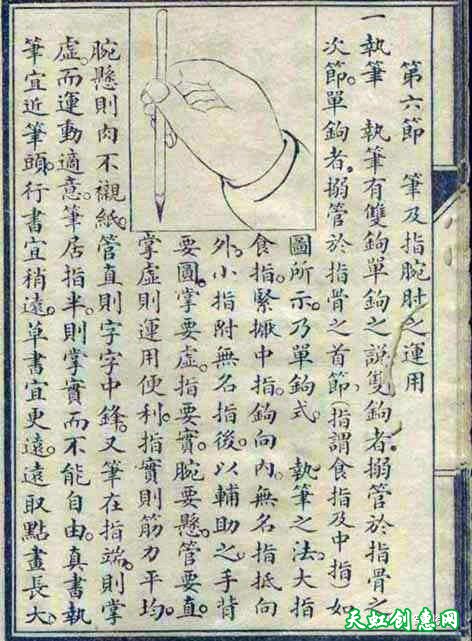 第六節 筆及指腕肘之運用
一執筆 執筆有雙鉤單鉤之說雙鉤者。搦管於指骨之
次節。單鉤者。搦管於指骨之首節、(指謂食指及中指如
圖所示乃單鉤式。 執筆之法大指
食指。緊擫中指。鉤向內。無名指抵向
外。小指附無名指後。以輔助之。手背
要圓。掌要虛。指要實。腕要懸。管要直。
掌虛則運用便利。指實則筋力平均。
腕懸則肉不襯紙。管直則字字中鋒。又筆在指端。則掌
虛。而運動適意。筆居指半。則掌實而不能自由。真書執
筆宜近筆頭。行書宜稍遠。草書宜更遠。遠取點畫長大。
天虹创意网